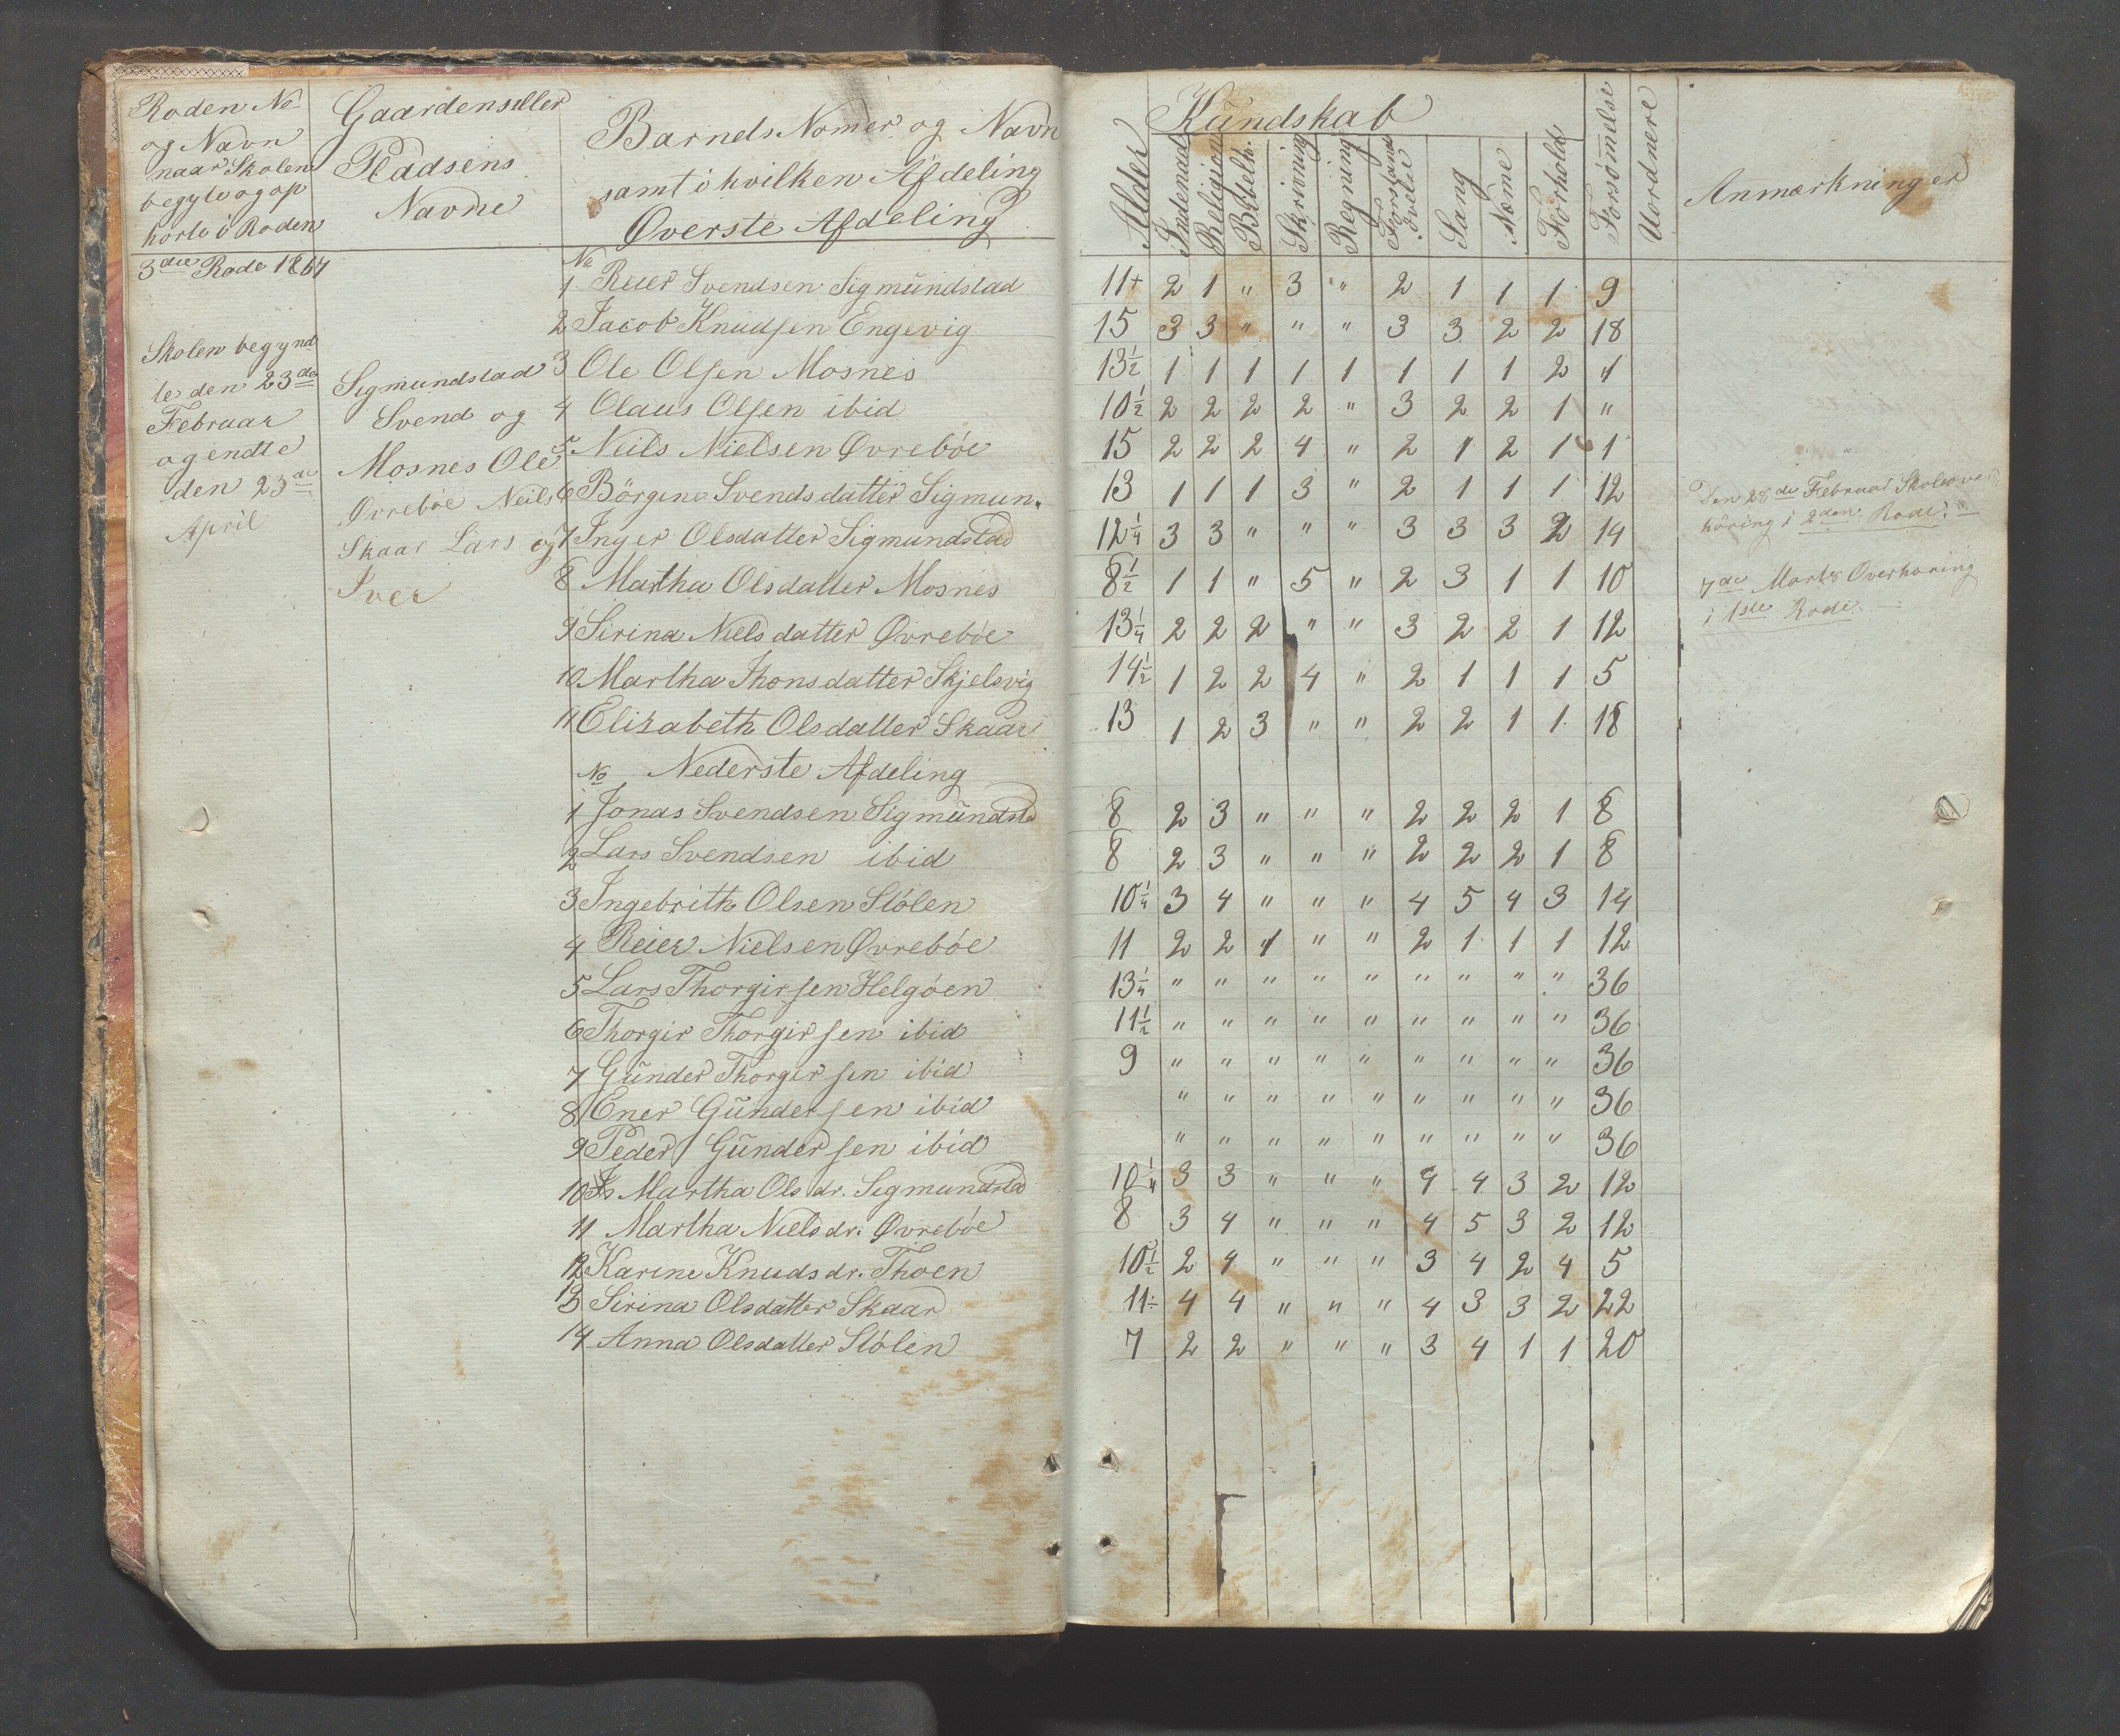 Roden No
og Navn
naar Skolen
begyte og op
hørte i Roden
Gaardens eller
Pladsens
Navne
Barnets Nomer og Navn
samt i hvilken Afdeling
Øverste Afdeling
Kundskab
Alder Indenad Religion Bibelh. Skrivning Regning Forstands Øvelse Sang Næme Forhold Forsømmelse Uordnere Anmærkninger
3die Rode 1864
Skolen begynd
te den 23de
Februar
og endte
den 23de
April
Sigmundstad
Svend og
Mosnes Ole
Øvrebøe Neils
Skaar Lars og
Iver
No
1 Reier Svendsen Sigmundstad 11+ 2 1 " 3 " 2 1 1 1 9
2 Jacob Knudsen Engevig 15 3 3 " " " 3 3 2 2 18
3 Ole Olsen Mosnes 13½ 1 1 1 1 1 1 1 1 2 "
4 Olaus Olsen ibid 10½ 2 2 2 2 " 3 2 2 1 "
5 Neils Nielsen Øvrebøe 15 2 2 2 4 " 2 1 2 1 1
6 Börgine Svendsdatter Sigmun. 13 1 1 1 3 " 2 1 1 1 12
7 Inger Olsdatter Sigmundstad 12¼ 3 3 " " " 3 3 3 2 14
8 Martha Olsdatter Mosnes 8½ 1 1 " 5 " 2 3 1 1 10
9 Sirina Nielsdatter Øvrebøe 13¼ 2 2 2 " " 3 2 2 1 12
10 Martha Thonsdatter Skjelsvig 14½ 1 2 2 4 " 2 1 1 1 5
11 Elisabeth Olsdatter Skaar 13 1 2 3 " " 2 2 1 1 18
No Nederste Afdeling
1 Jonas Svendsen Sigmundstd 8 2 3 " " " 2 2 2 1 8
2 Lars Svendsen ibid 8 2 3 " " " 2 2 2 1 8
3 Ingebrith Olsen Stölen 10¼ 3 4 " " " 4 5 4 3 14
4 Reier Nielsen Øvrebøe 11 2 2 1 " " 2 1 1 1 12
5 Lars Thorgirsen Helgöen 13¼ " " " " " " " " " 36
6 Thorgir Thorgirsen ibid 11½ " " " " " " " " " 36
7 Gunder Thorgirsen ibid 9 " " " " " " " " " 36
8 Ener Gundersen ibid " " " " " " " " " 36
9 Peder Gundersen ibid " " " " " " " " " 36
10 Martha Olsdr. Sigmundstd 10¼ 3 3 " " " 4 4 3 2 12
11 Martha Nielsdr. Øvrebøe 8 3 4 " " " 4 5 3 2 12
12 Karine Knudsdr. Thoen 10½ 2 4 " " " 3 4 2 4 5
13 Sirina Olsdatter Skaar 11 4 4 " " " 4 3 3 2 22
14 Anna Olsdatter Stölen 7 2 2 " " " 3 4 1 1 20
Den 28de Februar Skoleover
höring i 2den Rode
7de Marts Overhøring
i 1ste Rode